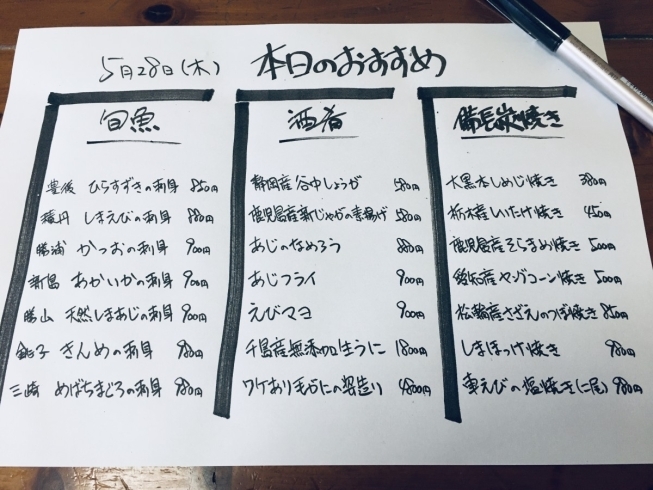 5月28日(木) 本日のおすすめ
旬魚
豊後 ひらすずきの刺身 850円
積丹 しまえびの刺身 880円
勝浦 かつおの刺身 900円
新島 あかいかの刺身 900円
勝山 天然しまあじの刺身 900円
銚子 きんめの刺身 980円
三崎 めばちまぐろの刺身 980円
酒肴
静岡産谷中しょうが 580円
鹿児島産新じゃがの素揚げ 580円
あじのなめろう 880円
あじフライ 900円
えびマヨ 900円
千島産無添加生うに 1800円
ワケあり毛がにの姿造り 4800円
備長炭焼き
大黒本しめじ焼き 380円
栃木産しいたけ焼き 450円
鹿児島産そらまめ焼き 500円
産ヤングコーン焼き 500円
松輪産さざえのつぼ焼き 850円
しまほっけ焼き 980円
車えびの塩焼き(二尾) 980円